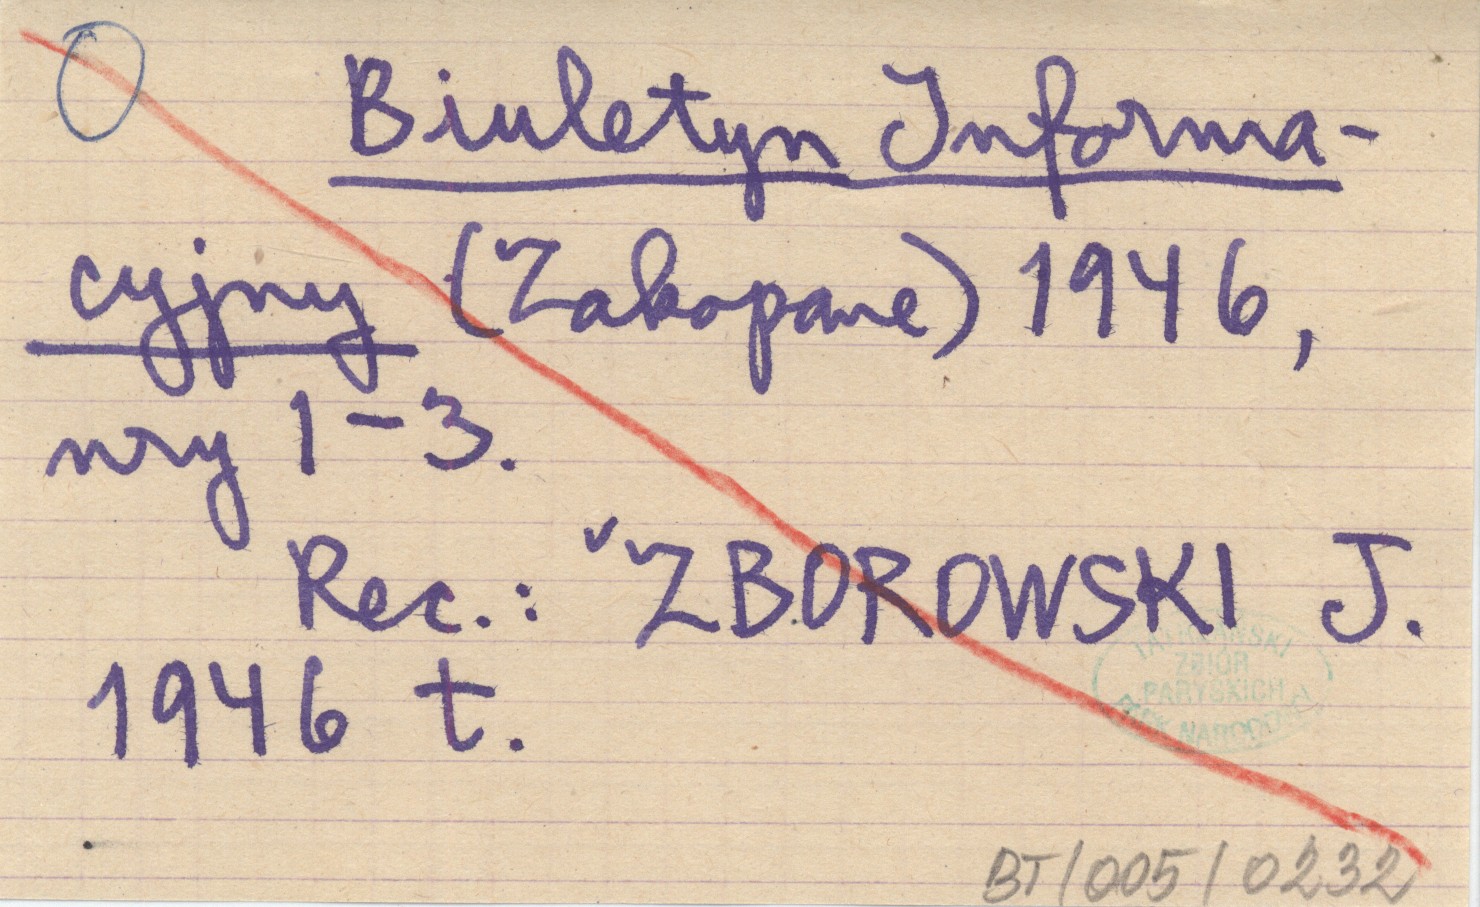 Biuletyn Informa-
cyjny (Zakopane) 1946,
nry 1-3.
Rec.: ZBOROWSKI J.
1946 t.
TATRZAŃSKI
ZBIÓR
PARYSKICH
PARK NARODOWY
BT/005/0232